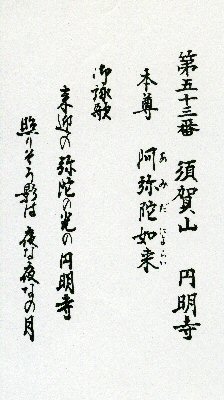 第五十三番 須賀山 円明寺
本尊 阿弥陀如来
あみだ によらい
御詠歌
来迎の 弥陀の光の 円明寺
照りそう影は 夜な夜なの月